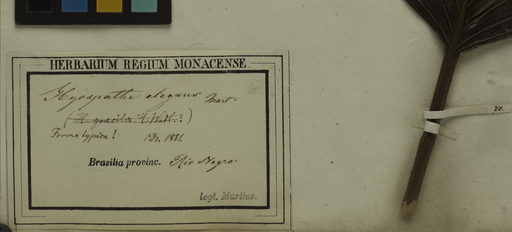 HERBARIUM REGIUM MONACENSE.
Hyospathe elegans Mart.
(H. gracilis H. Wdl.?)
Forma typica! Dr. 1881.
Brasilia provinc. Rio Negro
legt. Martius.
72.